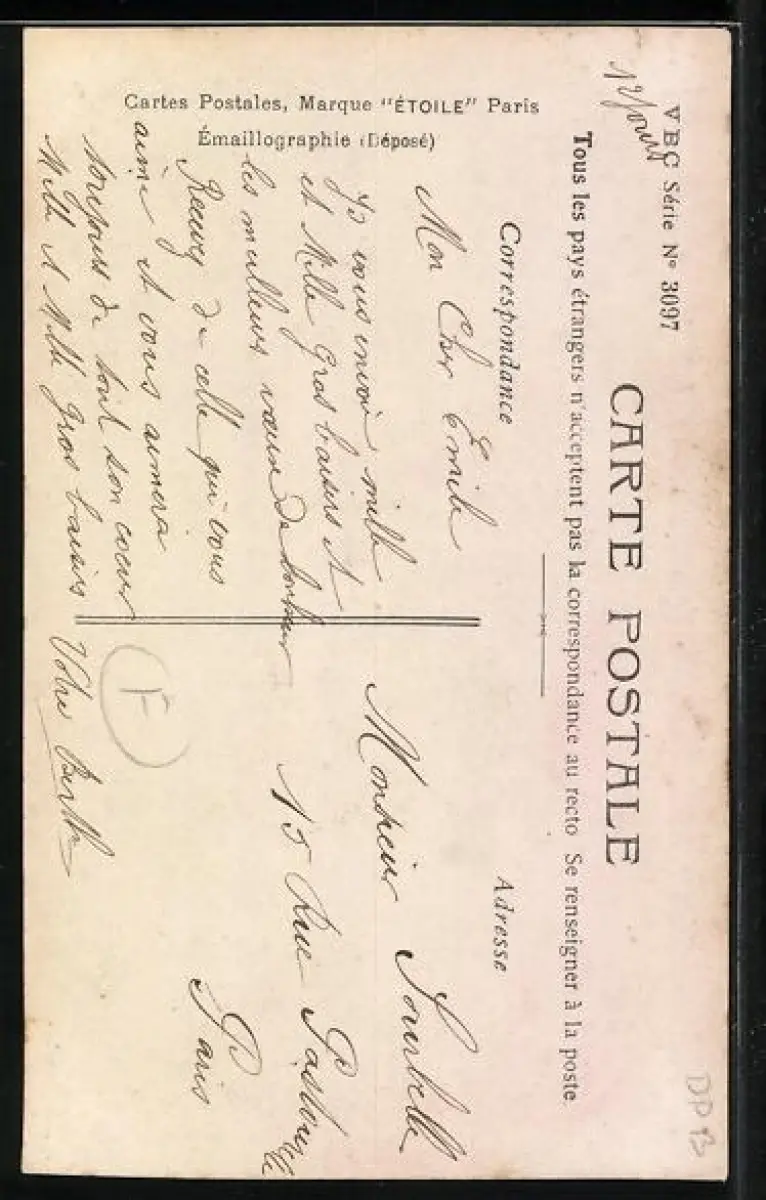 V B C Série N° 3097
CARTE POSTALE
Tous les pays étrangers n'acceptent pas la correspondance au recto Se renseigner à la poste.
Correspondance
Adresse
Mon Cher Emile
Je vous envoie mille
et Mille Gros baisers et
les meilleurs vœux de bonheur
Recevez de celle qui vous
aime et vous aimera
toujours de tout son coeur
Mille et Mille Gros baisers
Votre Berthe
Monsieur
15 Rue Pastourelle
Paris
F
DP 13
Cartes Postales, Marque "ÉTOILE" Paris
Émaillographie (Déposé)